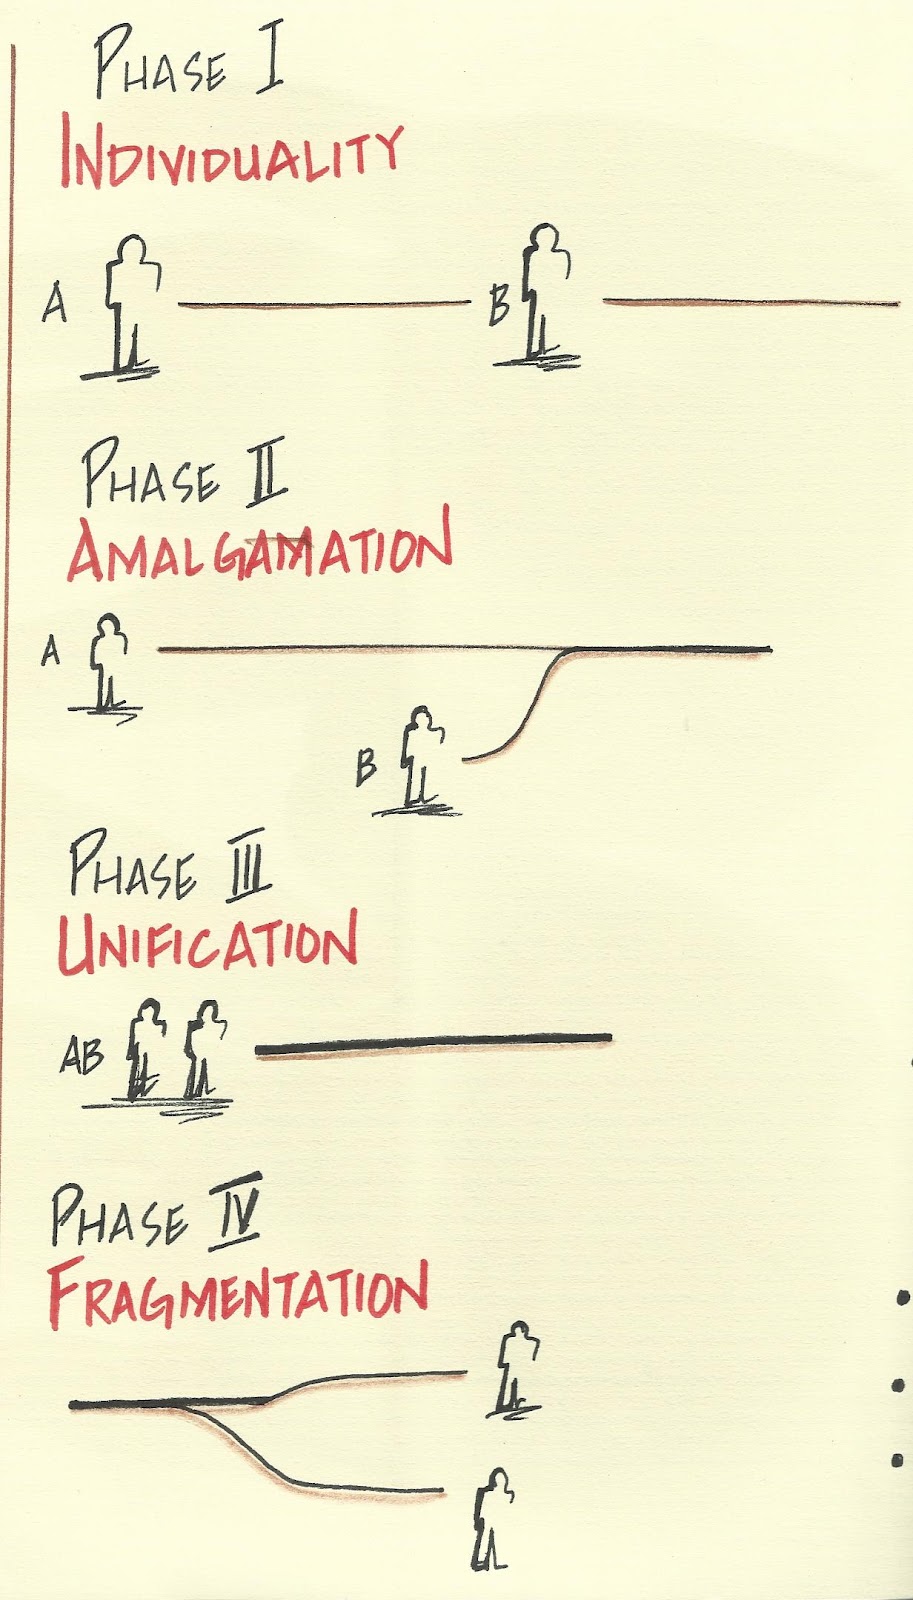 PHASE I
INDIVIDUALITY
A B
PHASE II
AMALGAMATION
A
B
PHASE III
UNIFICATION
AB
PHASE IV
FRAGMENTATION